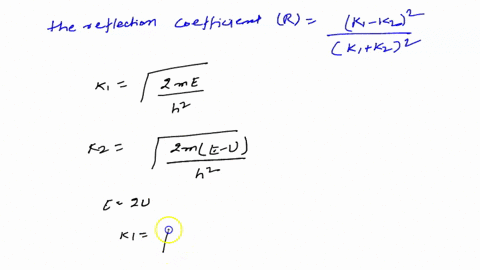 the reflection coefficient (R) = (K1-K2)² / (K1+K2)²
K1 = √(2mE / h²)
K2 = √(2m(E-U) / h²)
E = 2U
K1 =